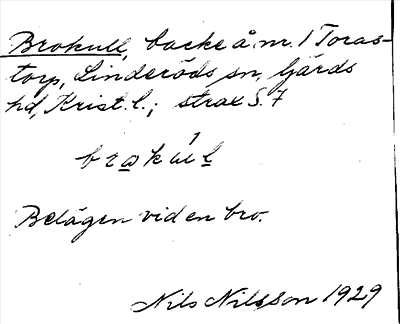 Brokull, backe å m. 1 Toras-
torp, Linderöds sn, Gärds
hd, Krist. l.; strax S. 7
brωkùl
Belägen vid en bro.
Nils Nilsson 1929